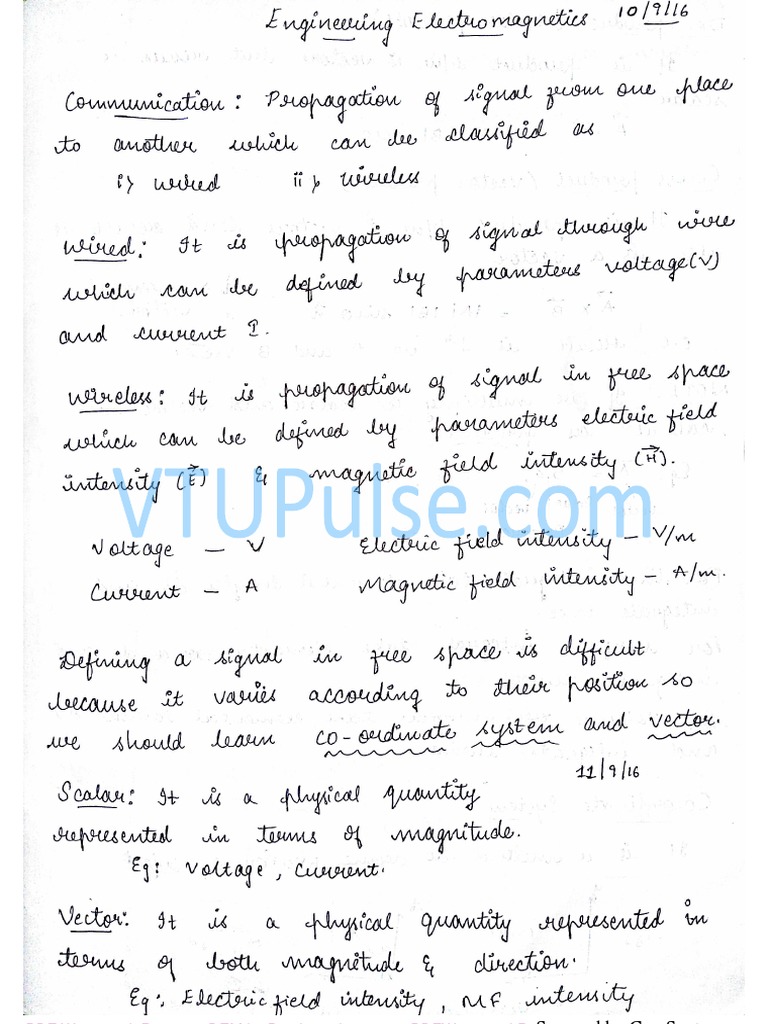 Engineering Electromagnetics 10/9/16
Communication: Propagation of signal from one place
to another which can be classified as
i> wired ii> wireless
Wired: It is propagation of signal through wire
which can be defined by parameters voltage(V)
and current I.
Wireless: It is propagation of signal in free space
which can be defined by parameters electric field
intensity (E⃗) & magnetic field intensity (H⃗).
VTUPulse.com
Voltage – V Electric field intensity – V/m
Current – A Magnetic field intensity – A/m.
Defining a signal in free space is difficult
because it varies according to their position so
we should learn co-ordinate system and vector.
11/9/16
Scalar: It is a physical quantity
represented in terms of magnitude.
Eg: Voltage, Current.
Vector: It is a physical quantity represented in
terms of both magnitude & direction.
Eg: Electric field intensity, MF intensity